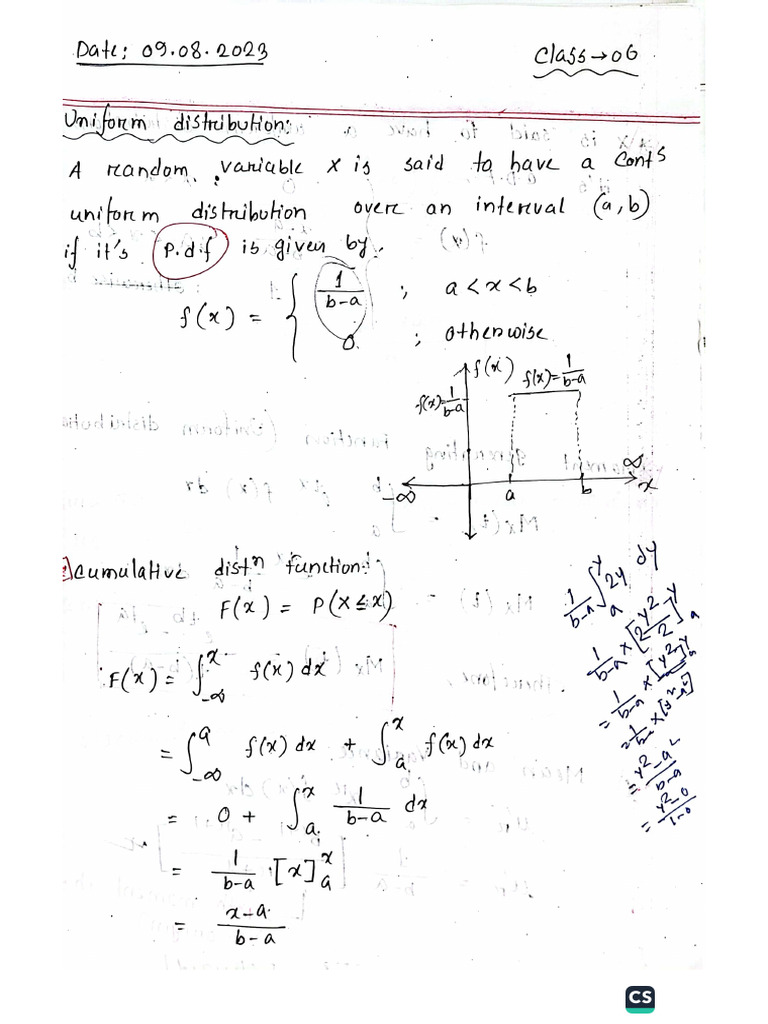 Date: 09.08.2023
Class→06
Uniform distribution:
A random variable X is said to have a Contˢ
uniform distribution over an interval (a,b)
if it's p.d.f is given by,
f(x) = { 1/(b-a) ; a<x<b
0. ; otherwise
f(x)
f(x)=1/(b-a)
f(x)=1/(b-a)
-∞ a b ∞
x
Cumulative distⁿ function:
F(x) = P(X≤x)
F(x) = ∫_{-∞}^{x} f(x) dx
= ∫_{-∞}^{a} f(x) dx + ∫_{a}^{x} f(x) dx
= 0 + ∫_{a}^{x} 1/(b-a) dx
= 1/(b-a) · [x]_{a}^{x}
= (x-a)/(b-a)
1/(b-a) ∫_{a}^{y} 2y dy
1/(b-a) × [2y²/2]_{a}^{y}
= 1/(b-a) × [y²]_{a}^{y}
= 1/(b-a) × [y²-a²]
= (y²-a²)/(b-a)
= (y²-0)/(1-0)
CS